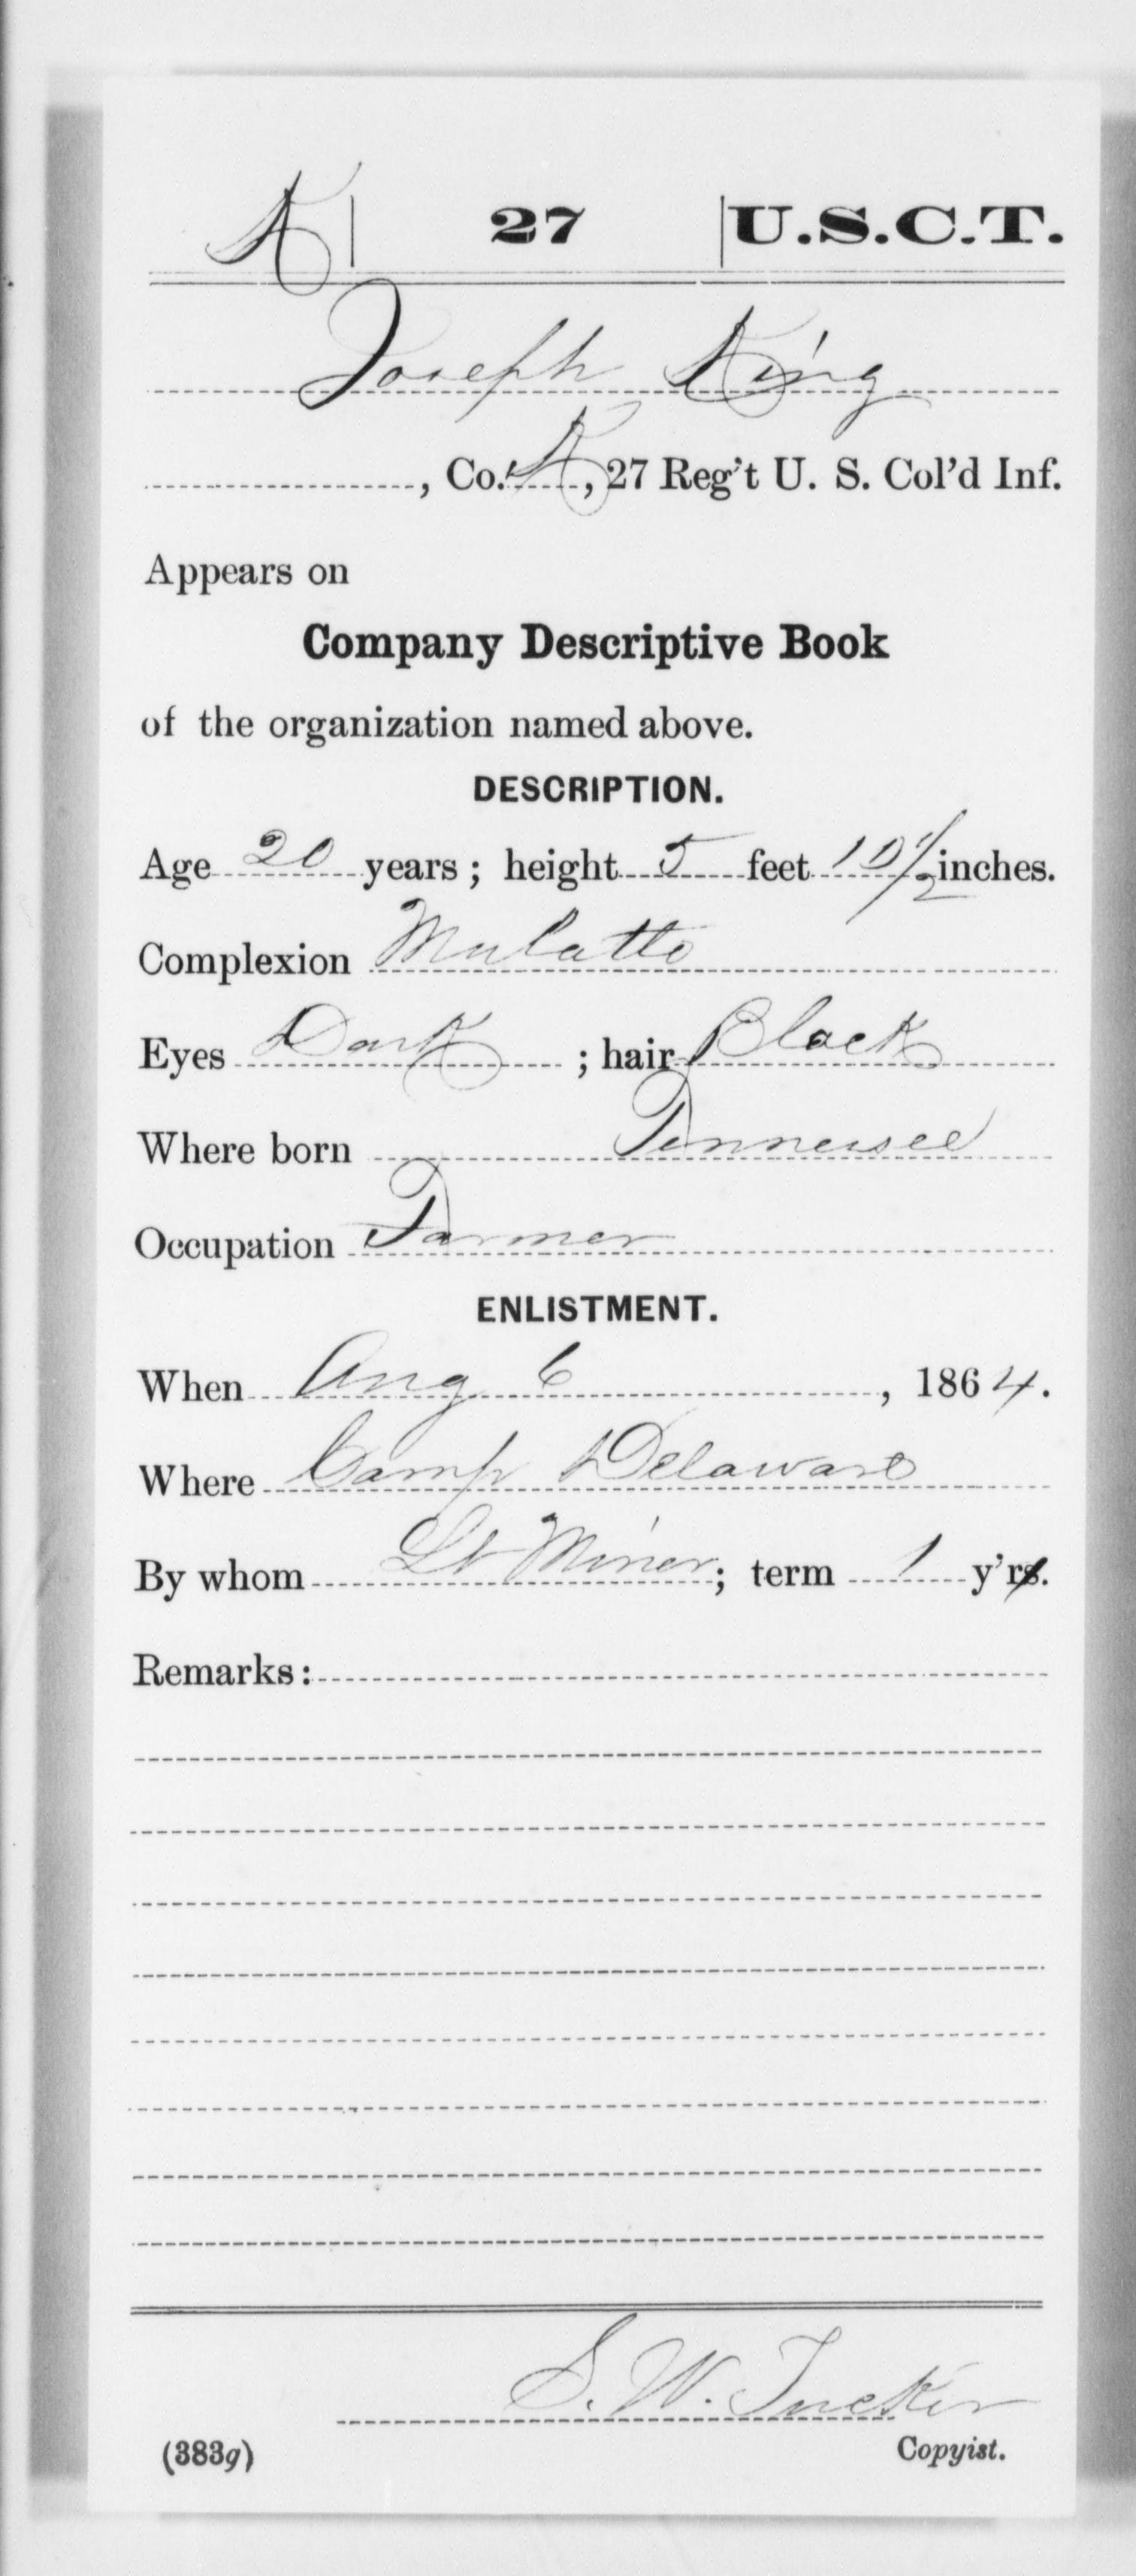 K | 27 | U.S.C.T.
Joseph King
, Co. K, 27 Reg't U. S. Col'd Inf.
Appears on
Company Descriptive Book
of the organization named above.
DESCRIPTION.
Age 20 years; height 5 feet 10 1/2 inches.
Complexion Mulatto
Eyes Dark; hair Black
Where born Tennessee
Occupation Farmer
ENLISTMENT.
When Aug 6, 1864.
Where Camp Delaware
By whom Lt Miner; term 1 y'r.
Remarks:
S. W. Tucker
(383g) Copyist.